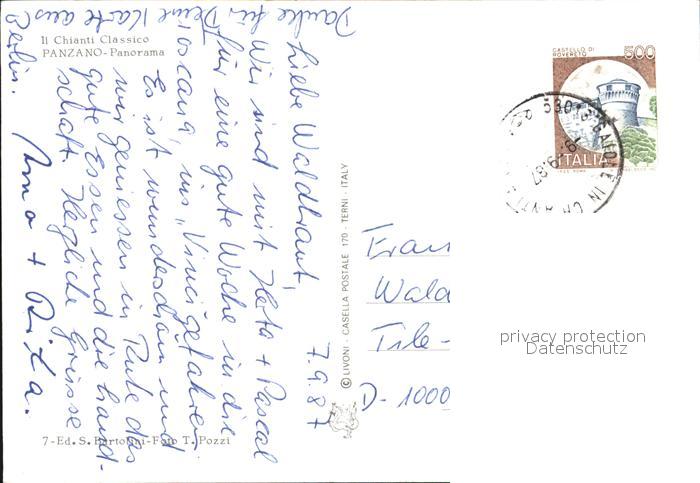 Il Chianti Classico
PANZANO - Panorama
7.9.87
Liebe Waldtraut,
Wir sind mit Heta + Pascal
für eine gute Woche in die
Toscana, ins „Vinci gefahren.
Es ist wunderschön und
wir geniessen in Ruhe das
gute Essen und die Land-
schaft. Herzliche Grüsse
+ Rita.
Danke für Deine Karte aus
Berlin.
7-Ed. S. Bartolini-Foto T. Pozzi
© LIVONI - CASELLA POSTALE 170 - TERNI - ITALY
CASTELLO DI
ROVERETO
500
ITALIA
19.9.87
Frau
Wald
Tile-
D-1000
privacy protection
Datenschutz